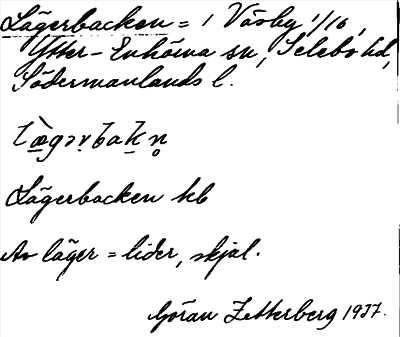 Lägerbacken = 1 Väsby 1/16,
Ytter-Enhörna sn, Selebo hd,
Södermanlands l.
Lägerbacken hb
Av läger = lider, skjul.
Göran Zetterberg 1937.